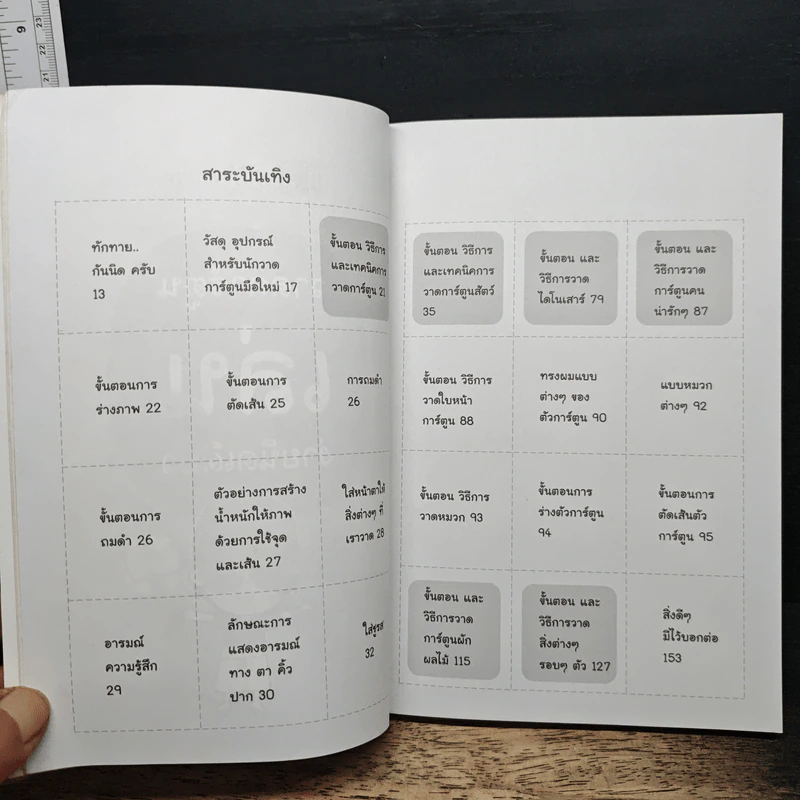 สาระบันเทิง
ทักทาย..
กันนิด ครับ
13
วัสดุ อุปกรณ์
สำหรับนักวาด
การ์ตูนมือใหม่ 17
ขั้นตอน วิธีการ
และเทคนิคการ
วาดการ์ตูน 21
ขั้นตอนการ
ร่างภาพ 22
ขั้นตอนการ
ตัดเส้น 25
การถมดำ
26
ขั้นตอนการ
ถมดำ 26
ตัวอย่างการสร้าง
น้ำหนักให้ภาพ
ด้วยการใช้จุด
และเส้น 27
ใส่หน้าตาให้
สิ่งต่างๆ ที่
เราวาด 28
อารมณ์
ความรู้สึก
29
ลักษณะการ
แสดงอารมณ์
ทาง ตา คิ้ว
ปาก 30
32
ขั้นตอน วิธีการ
และเทคนิคการ
วาดการ์ตูนสัตว์
35
ขั้นตอน และ
วิธีการวาด
ไดโนเสาร์ 79
ขั้นตอน และ
วิธีการวาด
การ์ตูนคน
น่ารักๆ 87
ขั้นตอน วิธีการ
วาดใบหน้า
การ์ตูน 88
ทรงผมแบบ
ต่างๆ ของ
ตัวการ์ตูน 90
แบบหมวก
ต่างๆ 92
ขั้นตอน วิธีการ
วาดหมวก 93
ขั้นตอนการ
ร่างตัวการ์ตูน
94
ขั้นตอนการ
ตัดเส้นตัว
การ์ตูน 95
ขั้นตอน และ
วิธีการวาด
การ์ตูนผัก
ผลไม้ 115
ขั้นตอน และ
วิธีการวาด
สิ่งต่างๆ
รอบๆ ตัว 127
สิ่งดีๆ
มีไว้บอกต่อ
153
9
23
22
21